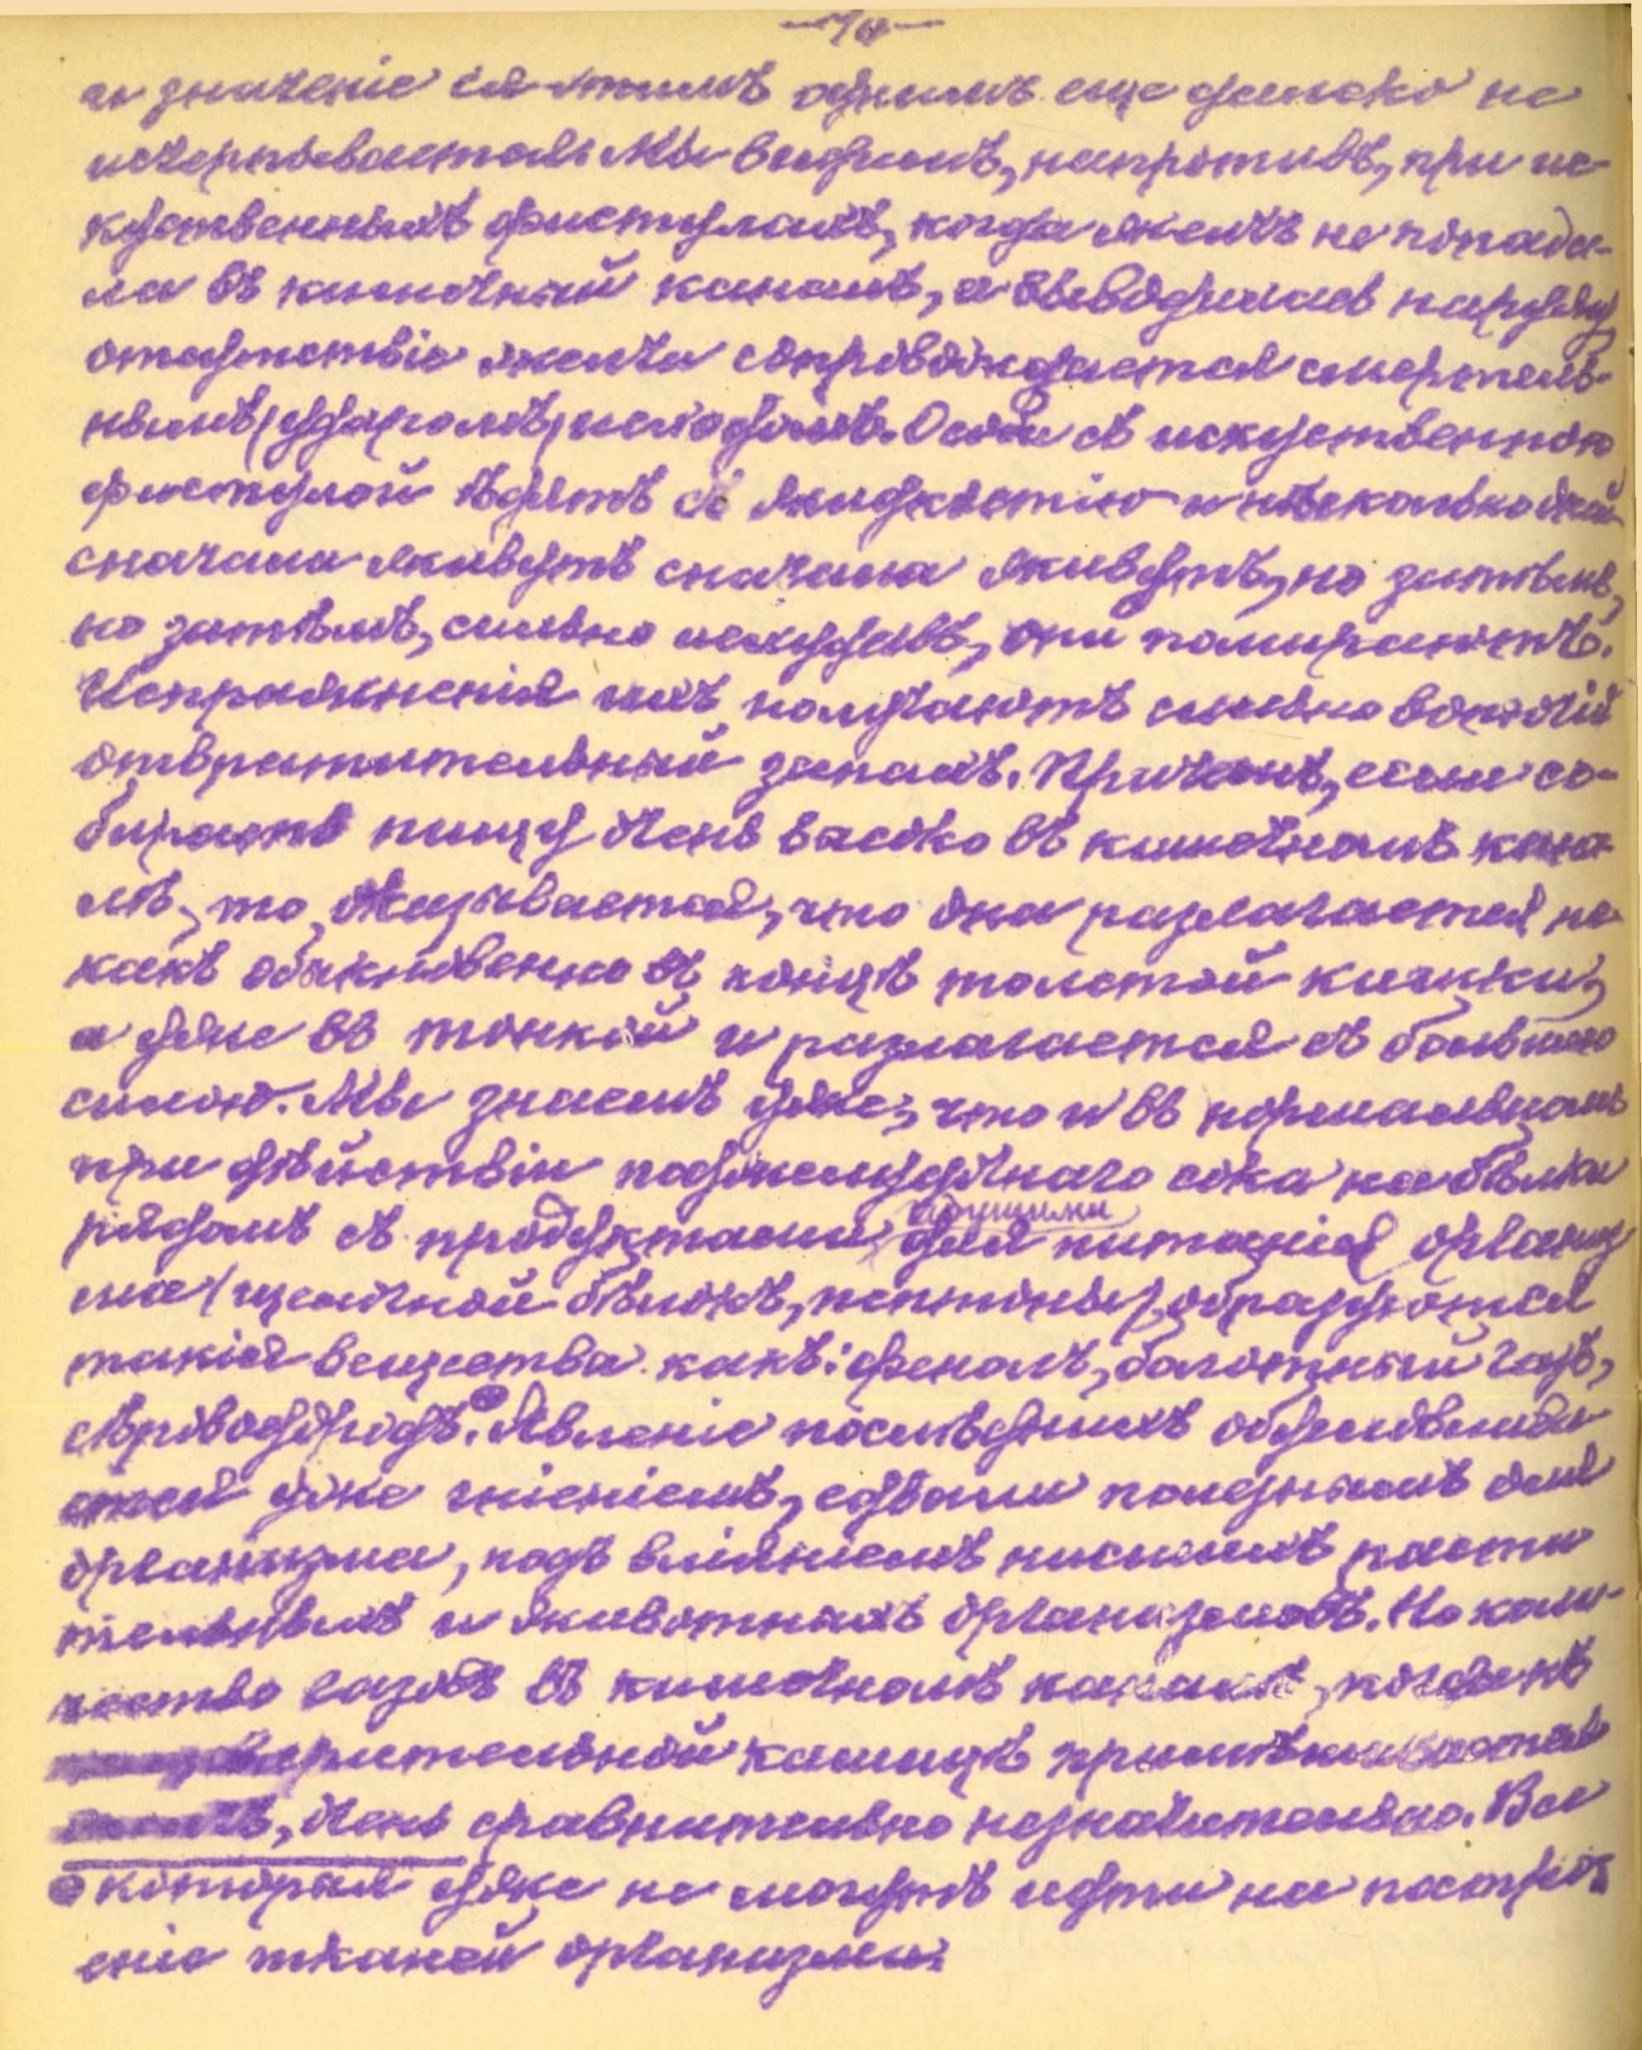 и значеніе ея этимъ однимъ еще далеко не
исчерпывается. Мы видимъ, напротивъ, при ис-
куственныхъ фистулахъ, когда желчь не попада-
ла въ кишечный каналъ, а выводилась наружу,
отсутствіе желчи сопровождается смертель-
нымъ (ударомъ) исходомъ. Особи съ искуственною
фистулой ѣдятъ съ жадностію и нѣсколько дней
сначала живутъ сначала живутъ, но затѣмъ,
но затѣмъ, сильно исхудавъ, они помираютъ.
Испражненія ихъ получаютъ сильно вонючій
отвратительный запахъ. Причемъ, если со-
бирать пищу очень высоко въ кишечномъ кана-
лѣ, то оказывается, что она разлагается не
какъ обыкновенно въ концѣ толстой кишки,
а уже въ тонкой и разлагается съ большею
силою. Мы знаемъ уже, что и въ нормальномъ
при дѣйствіи поджелудочнаго сока на бѣлки
рядомъ съ продуктами годными для питанія организ
ма (щелочной бѣлокъ, пептоны) образуются
такія вещества какъ: фенолъ, болотный газъ,
сѣрпводородъ. Явленіе послѣднихъ обусловлива
ется уже гніеніемъ, едвали полезнымъ для
организма, подъ вліяніемъ низшихъ расти
тельныхъ и животныхъ организмовъ. Но коли-
чество газовъ въ кишечномъ каналѣ, когда къ
кашицѣ примѣшивается
очень сравнительно незначительно. Все
которыя уже не могутъ идти на построг
еніе тканей организма.